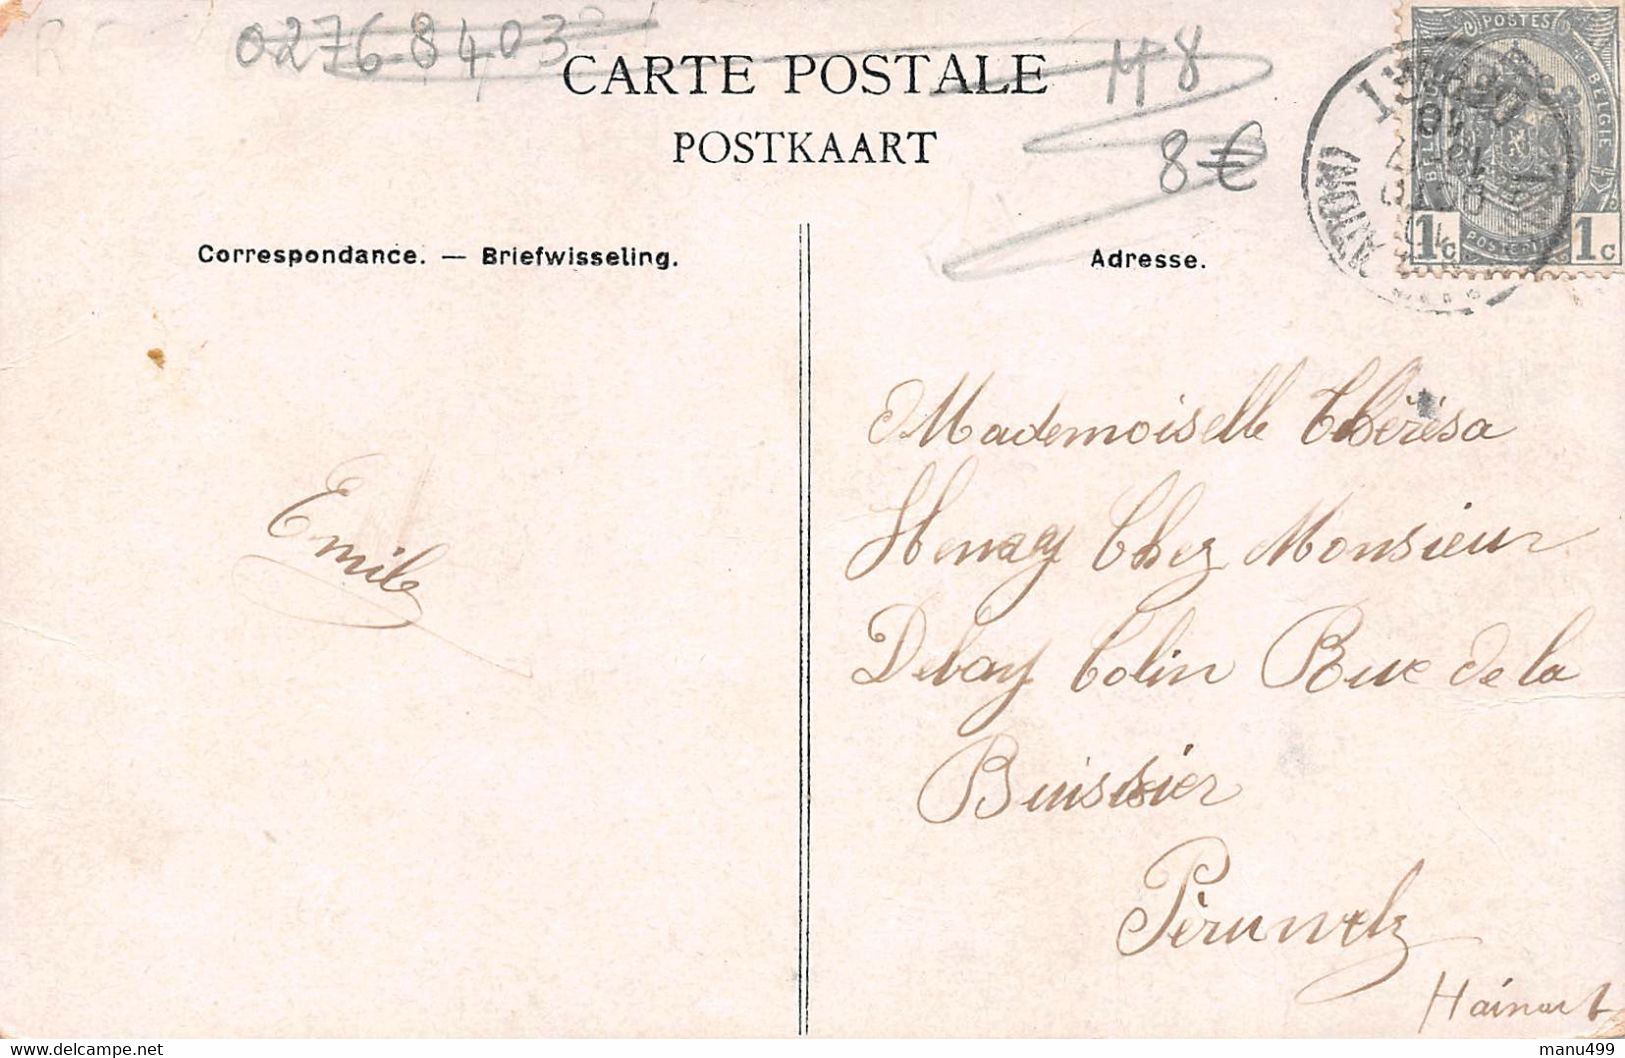 0276-8403
CARTE POSTALE
POSTKAART
M8
8€
POSTES
BELGIE
1c 1c
Correspondance. — Briefwisseling.
Adresse.
Mademoiselle Thérésa
Henry Chez Monsieur
Delvay Colin Rue de la
Buissier
Péruwelz
Hainaut
Emile
manu499